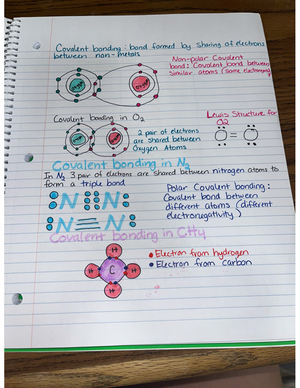 Covalent bonding: bond formed by sharing of electrons
between non-metals
Non-polar Covalent
bond: Covalent bond between
Similar atoms (same electroneg
Covalent bonding in O2
Lewis Structure for
O2
2 pair of electrons
are shared between
Oxygen Atoms
O = O
Covalent bonding in N2
In N2 3 pair of electrons are shared between nitrogen atoms to
form a triple bond
N N
N N
Polar Covalent bonding:
Covalent bond between
different atoms (different
electronegativity)
Covalent bonding in CH4
H
H C H
H
Electron from hydrogen
Electron from Carbon